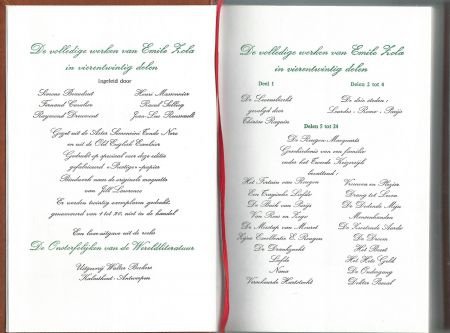 De volledige werken van Emile Zola
in vierentwintig delen
Ingeleid door
Simone Henri Massonnier
Fernand Raoul
Raymond Jean-Luc
Gezet uit de Aster Nova
en uit de Old English
Gedrukt op speciaal voor deze editie
gefabriceerd «Prestige»-papier
Bandwerk naar de originele maquette
van Jeff
Er werden twintig exemplaren gedrukt,
genummerd van 1 tot 20, niet in de handel
Een luxe uitgave uit de reeks
De Onsterfelijken van de Wereldliteratuur
Uitgeverij Walter Beckers
Kalmthout-Antwerpen
De volledige werken van Emile Zola
in vierentwintig delen
Deel 1
De Levensbiecht
gevolgd door
Thérèse Raquin
Delen 2 tot 4
De drie steden :
Lourdes - Rome - Parijs
Delen 5 tot 24
De Rougon-Macquarts
Geschiedenis van een familie
onder het Tweede Keizerrijk
bevattend :
Het Fortuin van Rougon
Een Tragische Liefde
De Buik van Parijs
Van Roes en Zege
De Misstap van Mouret
Zijne Excellentie E. Rougon
De Drankzucht
Liefde
Nana
Verscheurde Huistocht
Vrouwen en Plezier
Drang tot Leven
De Dolende Mijn
Mensenhanden
De Zwetende Aarde
De Droom
Het Beest
Het Gele Goud
De Ondergang
Dokter Pascal